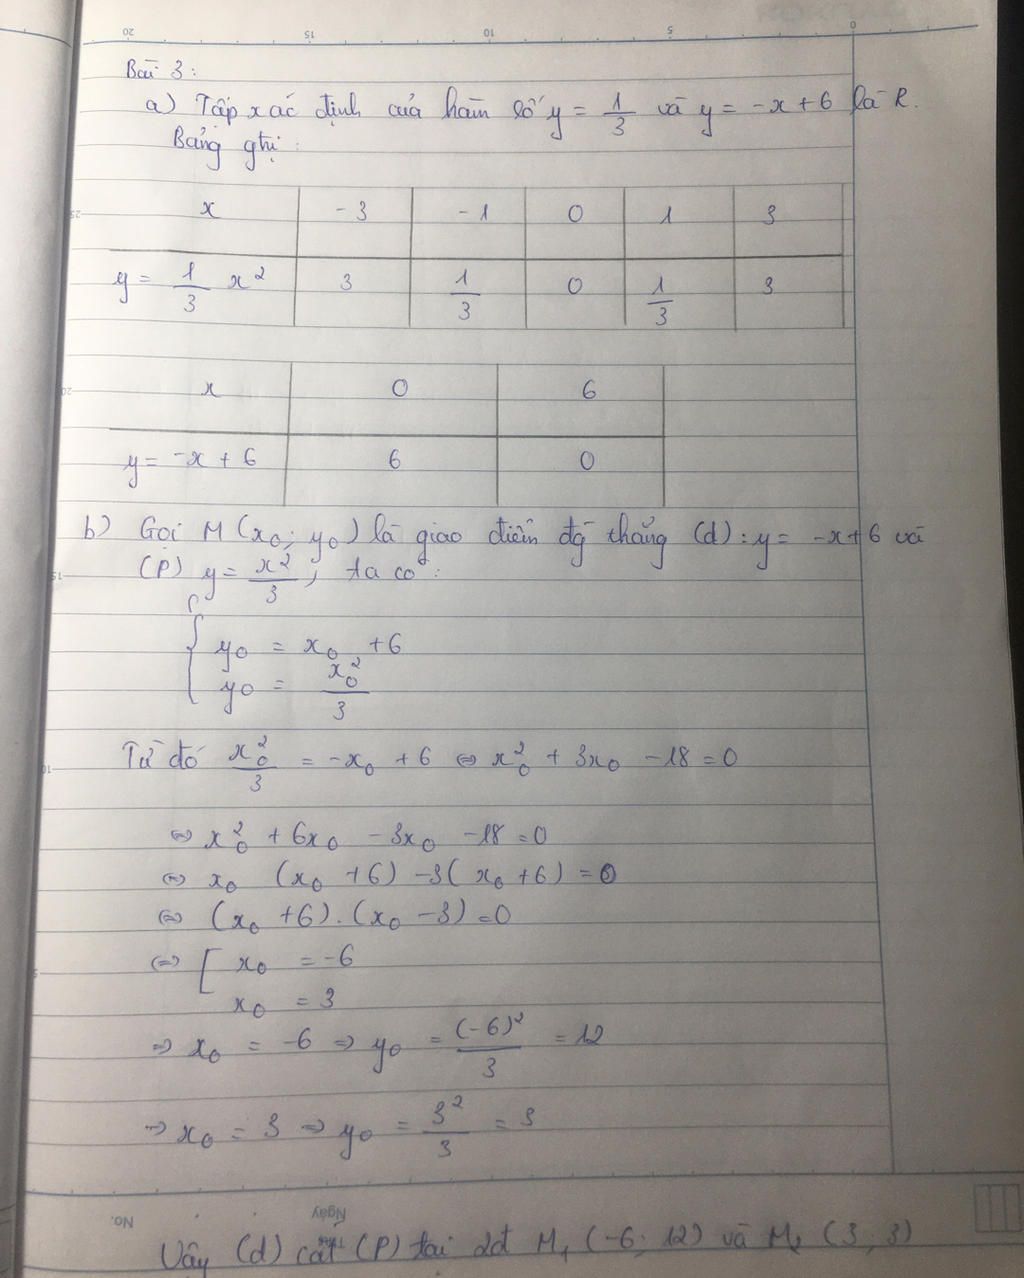 20 15 10 5 0
Bài 3:
a) Tập xác định của hàm số y = 1/3 và y = -x + 6 là R.
Bảng ghi:
x | -3 | -1 | 0 | 1 | 3
y = 1/3 x² | 3 | 1/3 | 0 | 1/3 | 3
x | 0 | 6
y = -x + 6 | 6 | 0
b) Gọi M (x₀; y₀) là giao điểm đg thẳng (d): y = -x + 6 và
(P) y = x²/3, ta có:
{ y₀ = x₀ + 6
y₀ = x₀²/3
Từ đó x₀²/3 = -x₀ + 6 ⇔ x₀² + 3x₀ - 18 = 0
⇔ x₀² + 6x₀ - 3x₀ - 18 = 0
⇔ x₀ (x₀ + 6) - 3(x₀ + 6) = 0
⇔ (x₀ + 6).(x₀ - 3) = 0
⇔ [ x₀ = -6
x₀ = 3
⇒ x₀ = -6 ⇒ y₀ = (-6)²/3 = 12
⇒ x₀ = 3 ⇒ y₀ = 3²/3 = 3
No. Ngày
Vậy (d) cắt (P) tại 2đ M₁ (-6; 12) và M₂ (3; 3)